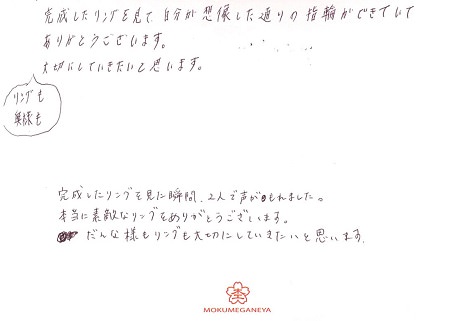 完成したリングを見て自分が想像した通りの指輪ができていて
ありがとうございます。
大切にしていきたいと思います。
リングも
奥様も
完成したリングを見た瞬間、2人で声がもれました。
本当に素敵なリングをありがとうございます。
だんな様もリングも大切にしていきたいと思います.
MOKUMEGANEYA